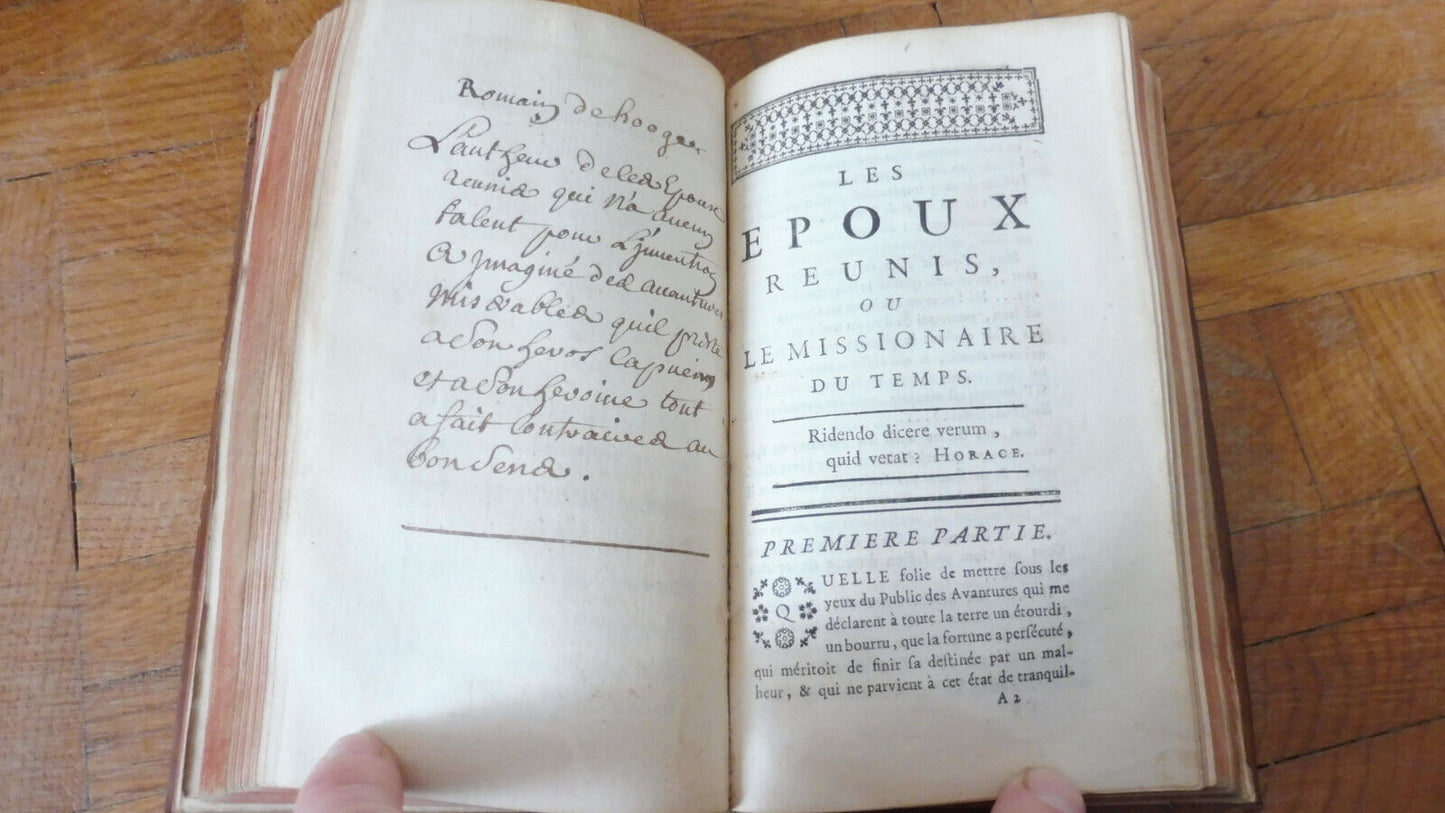 Romain de hooge
L'autheur de les Epoux
reunis qui n'a aucun
talent pour L'jnvention
a jmaginé des avantures
miserables quil prete
a son heros Capucin
et a son heroine tout
a fait contraires au
bon sens.
LES
EPOUX
REUNIS,
OU
LE MISSIONAIRE
DU TEMPS.
Ridendo dicere verum,
quid vetat? HORACE.
PREMIERE PARTIE.
QUELLE folie de mettre sous les
yeux du Public des Avantures qui me
déclarent à toute la terre un étourdi,
un bourru, que la fortune a persécuté,
qui méritoit de finir sa destinée par un mal-
heur, & qui ne parvient à cet état de tranquil-
A 2